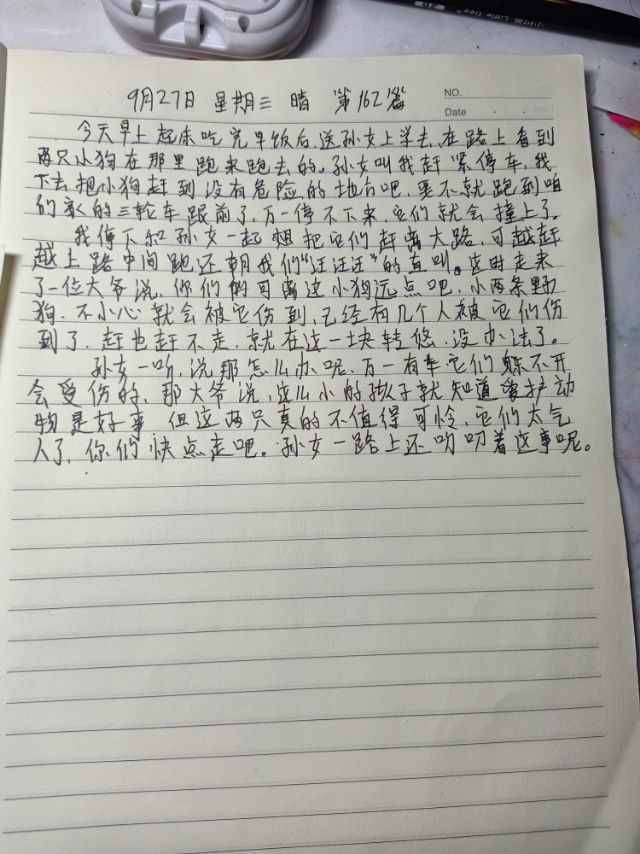 9月27日 星期三 晴 第162篇
NO.
Date
今天早上起床吃完早饭后,送孙女上学去,在路上看到
两只小狗在那里跑来跑去的。孙女叫我赶紧停车,我
下去把小狗赶到没有危险的地方吧,要不就跑到咱
们家的三轮车跟前了,万一停不下来,它们就会撞上了。
我停下和孙女一起想把它们赶离大路,可越赶
越上路中间跑还朝我们“汪汪汪”的直叫。这时走来
了一位大爷说,你们俩可离这小狗远点吧,小两条野
狗,不小心就会被它伤到,已经有几个人被它们伤
到了,赶也赶不走,就在这一块转悠,没办法了。
孙女一听,说那怎么办呢,万一有车它们躲不开
会受伤的,那大爷说,这么小的孩子就知道爱护动
物是好事,但这两只真的不值得可怜,它们太气
人了,你们快点走吧。孙女一路上还叨叨着这事呢。